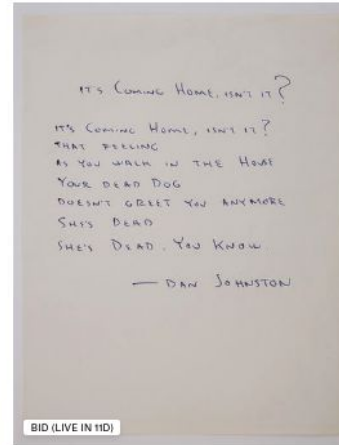 IT'S COMING HOME, ISN'T IT?
IT'S COMING HOME, ISN'T IT?
THAT FEELING
AS YOU WALK IN THE HOUSE
YOUR DEAD DOG
DOESN'T GREET YOU ANYMORE
SHE'S DEAD
SHE'S DEAD. YOU KNOW.
— DAN JOHNSTON
BID (LIVE IN 11D)